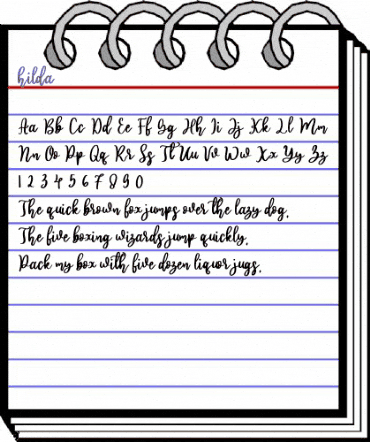 hilda
Aa Bb Cc Dd Ee Ff Gg Hh Ii Jj Kk Ll Mm
Nn Oo Pp Qq Rr Ss Tt Uu Vv Ww Xx Yy Zz
1 2 3 4 5 6 7 8 9 0
The quick brown fox jumps over the lazy dog.
The five boxing wizards jump quickly.
Pack my box with five dozen liquor jugs.